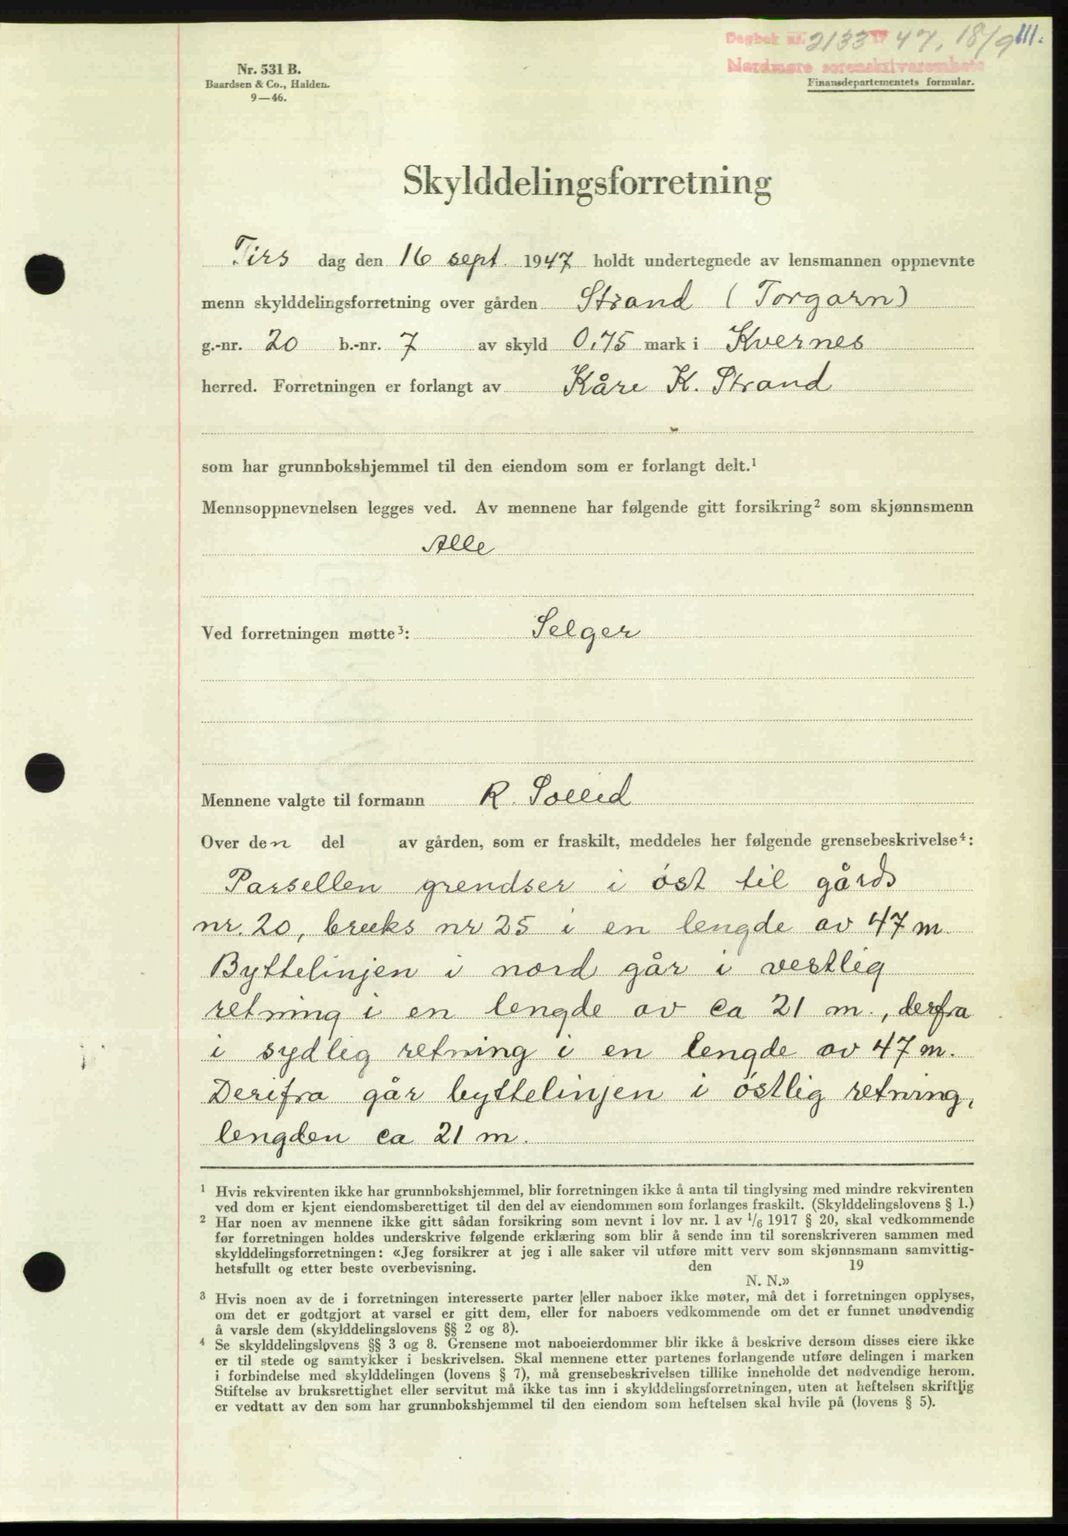 Dagbok nr. 2133 19 47, 18/9 111.
Nordmøre sorenskriverembete
Nr. 531 B.
Baardsen & Co., Halden.
9—46.
Finansdepartementets formular.
Skylddelingsforretning
Tirs dag den 16 sept. 1947 holdt undertegnede av lensmannen oppnevnte
menn skylddelingsforretning over gården Strand (Torgarn)
g.-nr. 20 b.-nr. 7 av skyld 0,75 mark i Kvernes
herred. Forretningen er forlangt av Kåre K. Strand
som har grunnbokshjemmel til den eiendom som er forlangt delt.¹
Mennsoppnevnelsen legges ved. Av mennene har følgende gitt forsikring² som skjønnsmenn
Alle
Ved forretningen møtte³: Selger
Mennene valgte til formann R. Sollid
Over den del av gården, som er fraskilt, meddeles her følgende grensebeskrivelse⁴:
Parsellen grendser i øst til gårds
nr. 20, bruks nr 25 i en lengde av 47 m.
Byttelinjen i nord går i vestlig
retning i en lengde av ca 21 m., derfra
i sydlig retning i en lengde av 47 m.
Derifra går byttelinjen i østlig retning,
lengden ca 21 m.
¹ Hvis rekvirenten ikke har grunnbokshjemmel, blir forretningen ikke å anta til tinglysing med mindre rekvirenten
ved dom er kjent eiendomsberettiget til den del av eiendommen som forlanges fraskilt. (Skylddelingslovens § 1.)
² Har noen av mennene ikke gitt sådan forsikring som nevnt i lov nr. 1 av 1/6 1917 § 20, skal vedkommende
før forretningen holdes underskrive følgende erklæring som blir å sende inn til sorenskriveren sammen med
skylddelingsforretningen: «Jeg forsikrer at jeg i alle saker vil utføre mitt verv som skjønnsmann samvittig-
hetsfullt og etter beste overbevisning. den 19
N. N.»
³ Hvis noen av de i forretningen interesserte parter eller naboer ikke møter, må det i forretningen opplyses,
om det er godtgjort at varsel er gitt dem, eller for naboers vedkommende om det er funnet unødvendig
å varsle dem (skylddelingslovens §§ 2 og 8).
⁴ Se skylddelingslovens §§ 3 og 8. Grensene mot naboeierdommer blir ikke å beskrive dersom disses eiere ikke
er til stede og samtykker i beskrivelsen. Skal mennene etter partenes forlangende utføre delingen i marken
i forbindelse med skylddelingen (lovens § 7), må grensebeskrivelsen tillike inneholde det nødvendige herom.
Stiftelse av bruksrettighet eller servitut må ikke tas inn i skylddelingsforretningen, uten at heftelsen skriftlig
er vedtatt av den som har grunnbokshjemmel til den eiendom som heftelsen skal hvile på (lovens § 5).